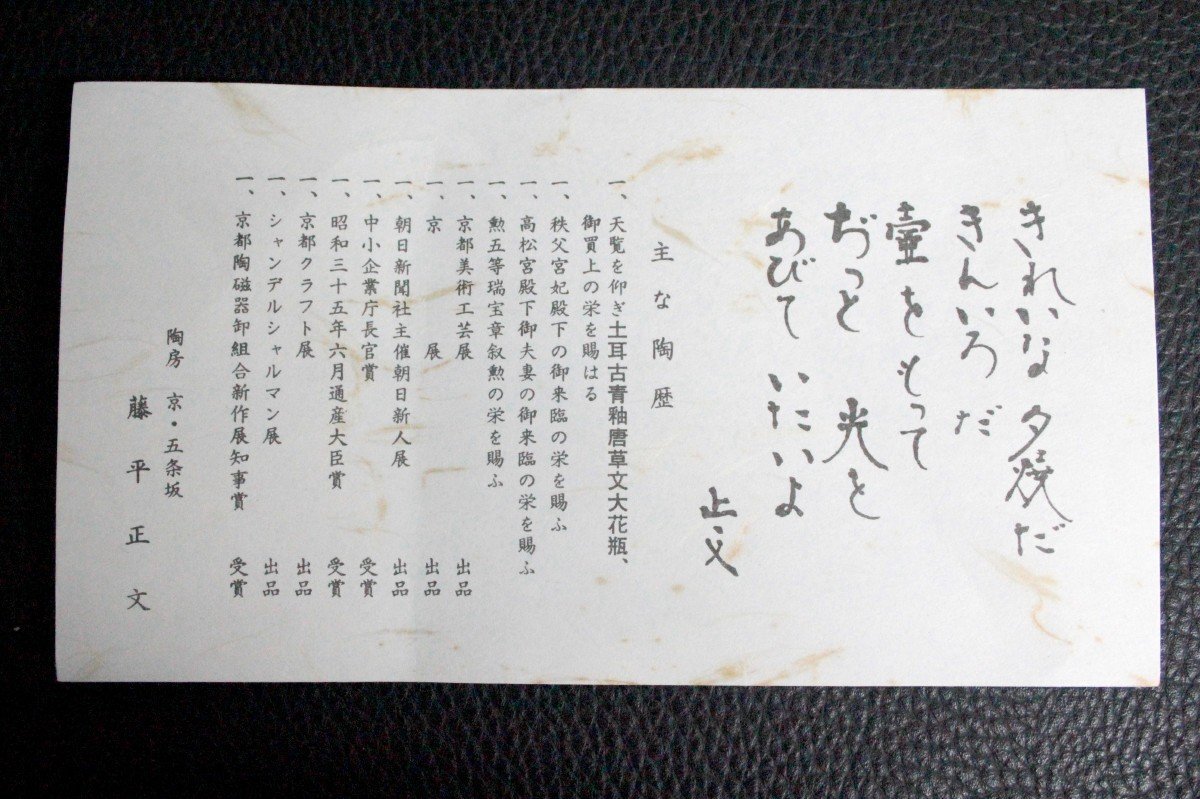 きれいな 夕焼だ
きんいろ だ
壷をもって
ぢっと 光を
あびて いたいよ
正文
主な陶歴
一、天覧を仰ぎ土耳古青釉唐草文大花瓶、
御買上の栄を賜はる
一、秩父宮妃殿下の御来臨の栄を賜ふ
一、高松宮殿下御夫妻の御来臨の栄を賜ふ
一、勲五等瑞宝章叙勲の栄を賜ふ
一、京都美術工芸展 出品
一、京 展 出品
一、朝日新聞社主催朝日新人展 出品
一、中小企業庁長官賞 受賞
一、昭和三十五年六月通産大臣賞 受賞
一、京都クラフト展 出品
一、シャンデルシャルマン展 出品
一、京都陶磁器卸組合新作展知事賞 受賞
陶房 京・五条坂
藤平正文